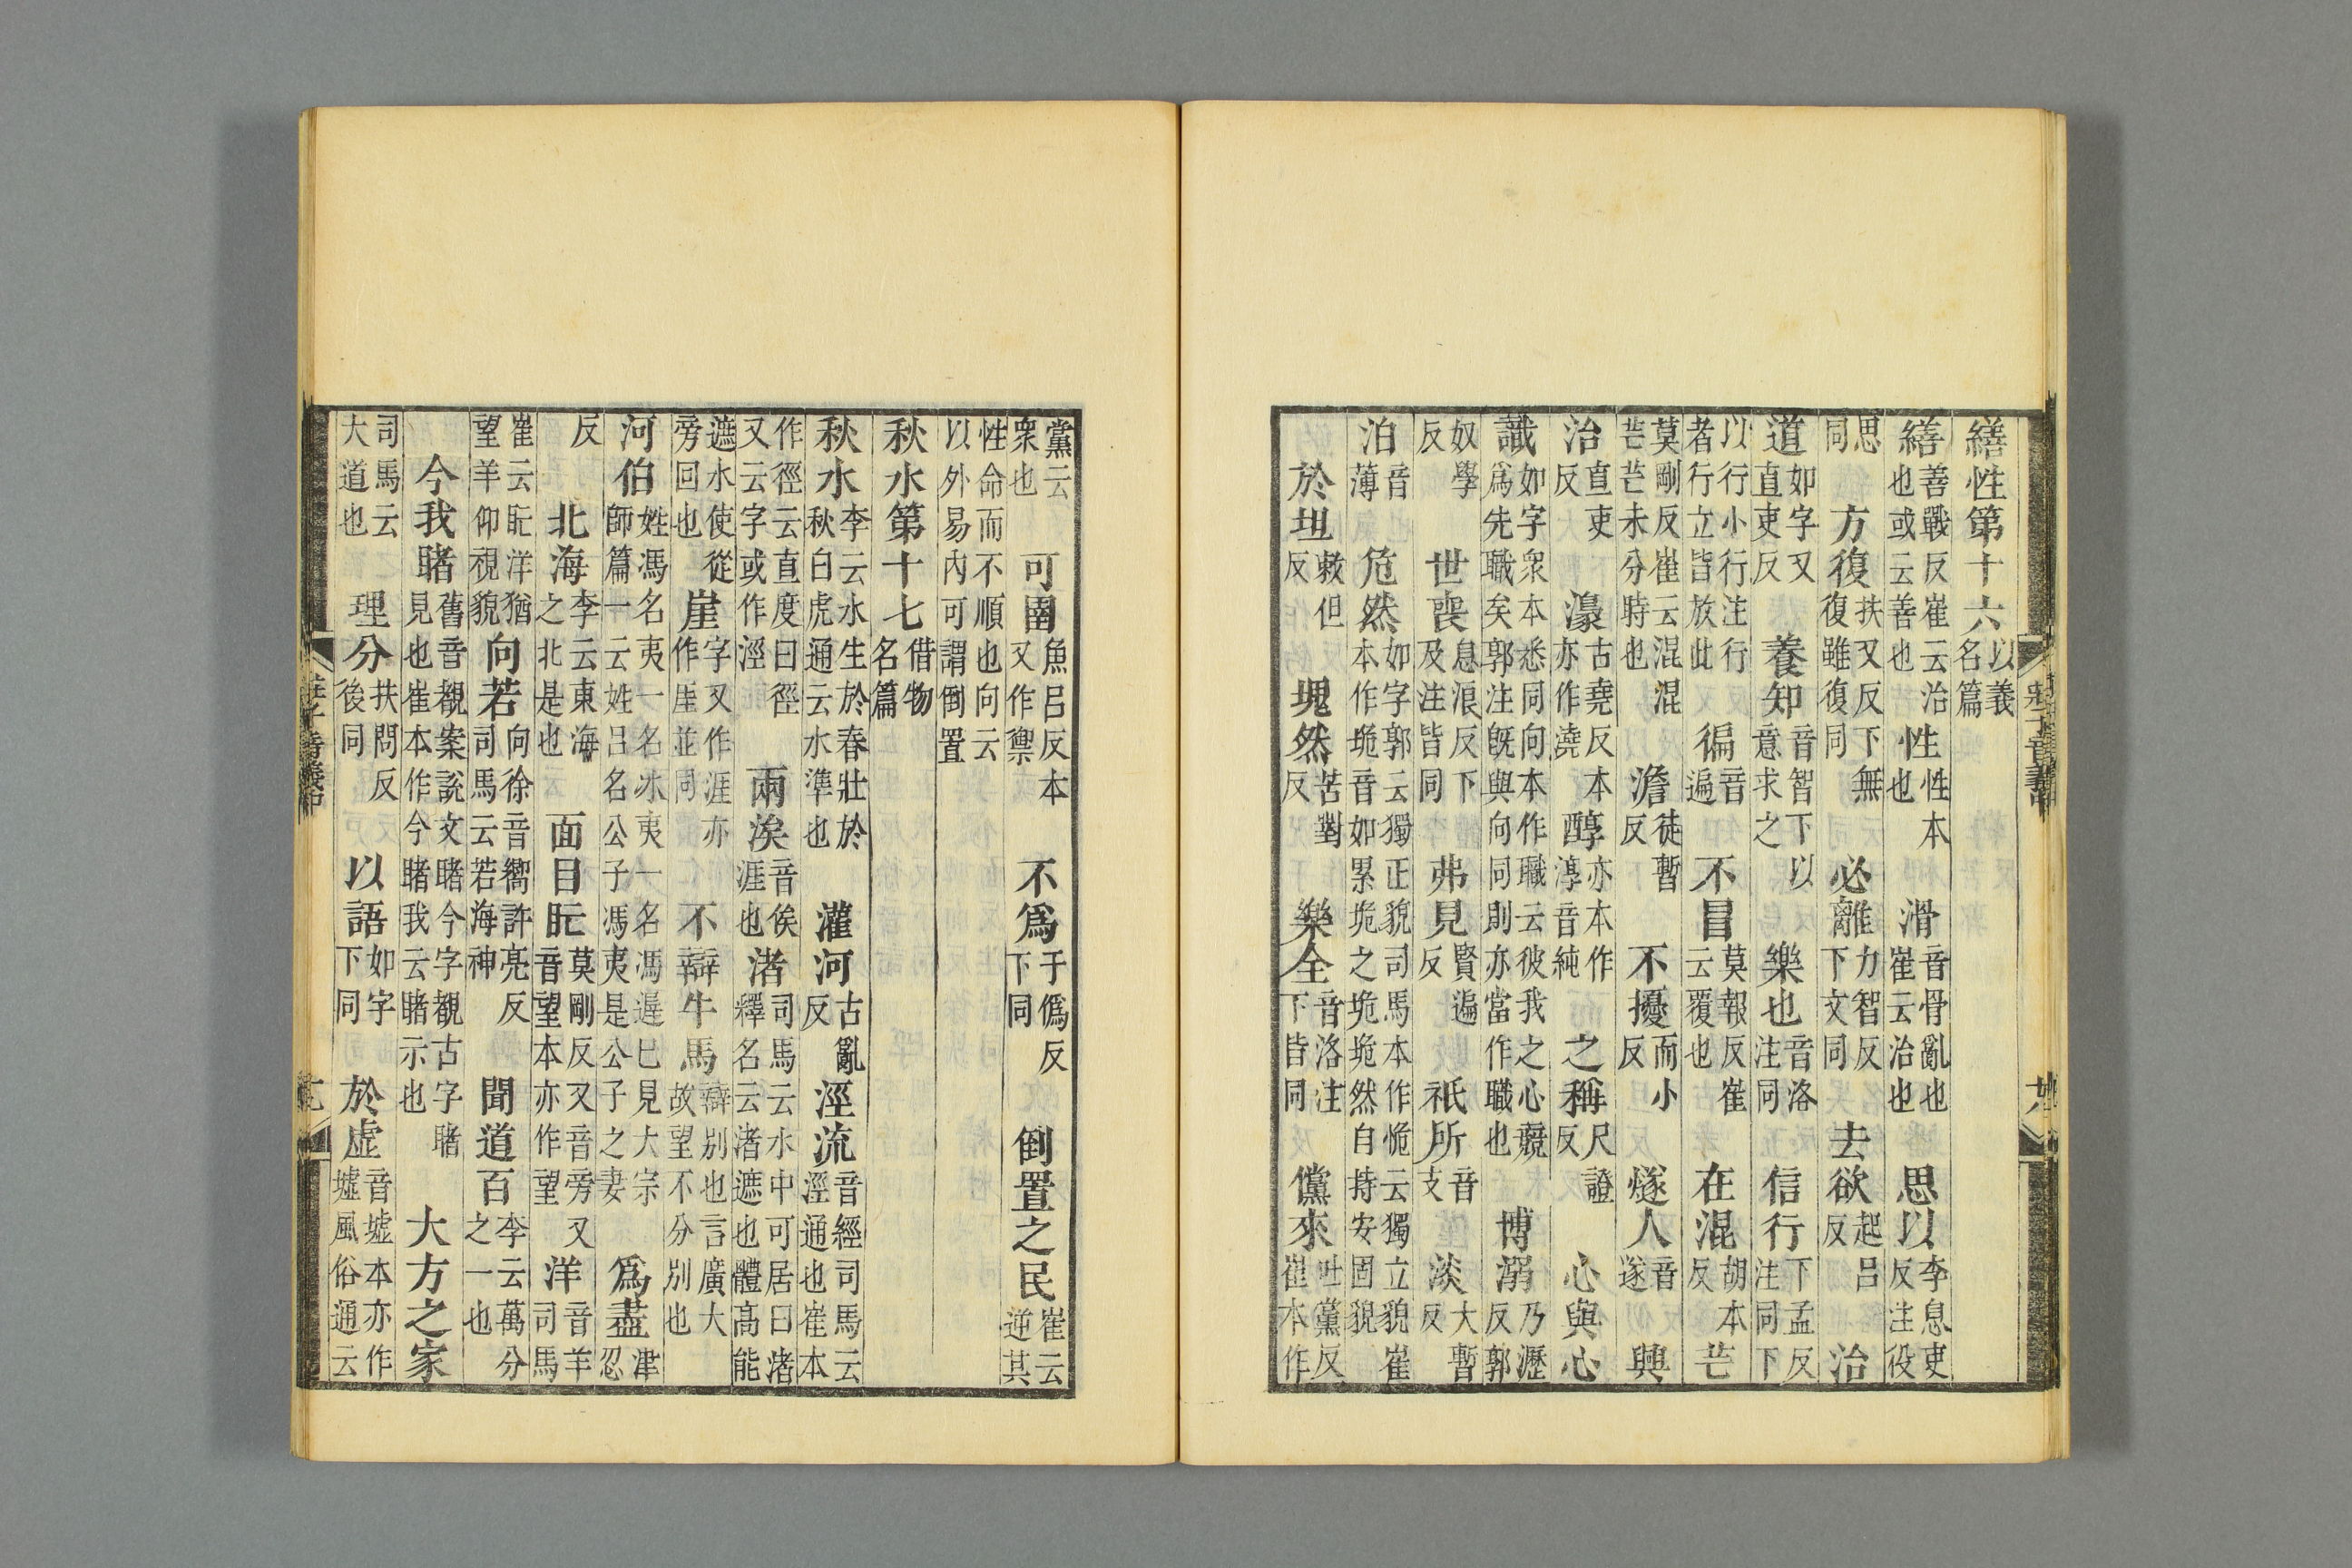 繕性第十六以義名篇
繕善戰反崔云治也或云善也性性本也滑音骨亂也崔云治也思以李息吏反注役
思同方復扶又反下無復雖復同必離力智反下文同去欲起呂反治
道如字又直吏反養知音智下以意求之樂也音洛注同信行下孟反注同下
以行小行行注行者行立皆放此徧音遍不冒莫報反崔云覆也在混胡本反芒
莫剛反崔云混混芒芒未分時也澹徒暫反不擾而小反燧人音遂興
治直吏反濠古堯反本亦作澆醇亦本作淳音純之稱尺證反心與心
識如字衆本悉同向本作職云彼我之心競爲先職矣郭注既與向同則亦當作職也博溺乃瀝反郭
奴學反世喪息浪反下及注皆同弗見賢遍反祇所音支淡大暫反
泊音薄危然如字郭云獨正貌司馬本作恑云獨立貌崔本作垝音如累垝之垝垝然自持安固貌
於坦敕但反塊然苦對反樂全音洛注下皆同儻來吐黨反崔本作
黨云衆也可圉魚呂反本又作禦不爲于僞反下同倒置之民崔云逆其
性命而不順也向云以外易內可謂倒置
秋水第十七借物名篇
秋水李云水生於春壯於秋白虎通云水準也灌河古亂反涇流音經司馬云涇通也崔本
作徑云直度曰徑又云字或作涇兩涘音俟涯也渚司馬云水中可居曰渚釋名云渚遮也體高能
遮水使從旁回也崖字又作涯亦作厓並同不辯牛馬辯別也言廣大故望不分別也
河伯姓馮名夷一名冰夷一名馮遲已見大宗師篇一云姓呂名公子馮夷是公子之妻爲盡津忍
反北海李云東海之北是也面目盳莫剛反又音旁又音望本亦作望洋音羊司馬
崔云盳洋猶望羊仰視貌向若向徐音嚮許亮反司馬云若海神聞道百李云萬分之一也
今我睹舊音覩案說文睹今字覩古字睹見也崔本作今睹我云睹示也大方之家
司馬云大道也理分扶問反後同以語如字下同於虛音墟本亦作墟風俗通云